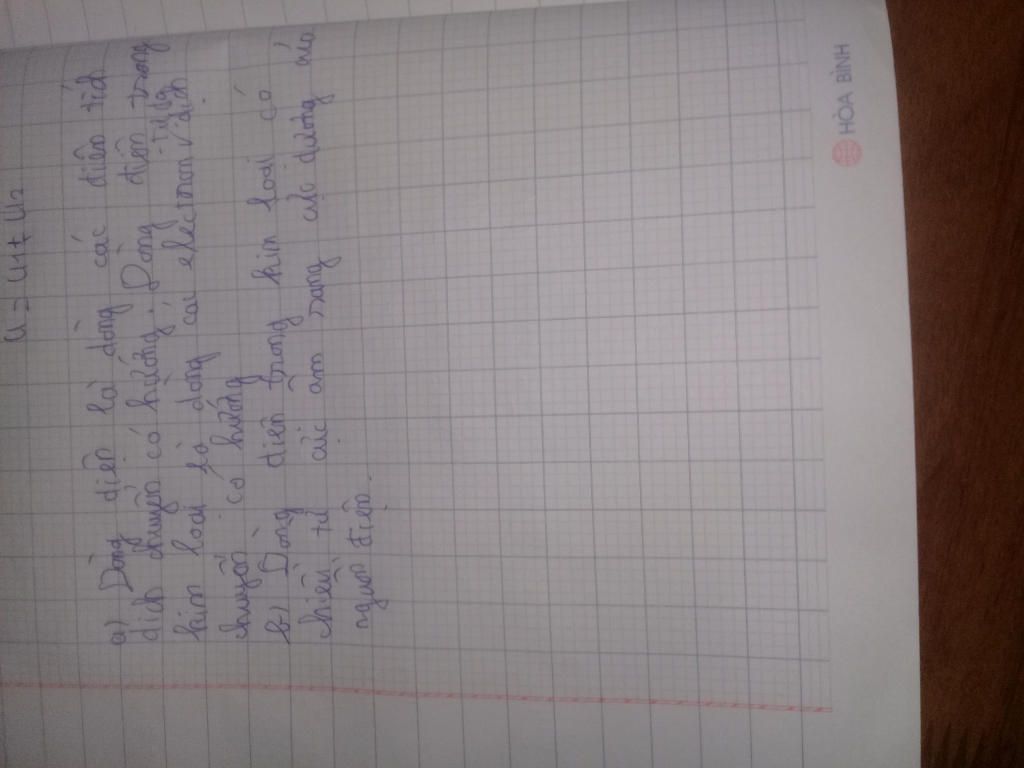 U = U1 + U2
a) Dòng điện là dòng các điện tích
dịch chuyển có hướng. Dòng điện trong
kim loại là dòng các electron tự do dịch
chuyển có hướng
b) Dòng điện trong kim loại có
chiều từ cực âm sang cực dương của
nguồn điện.
HÒA BÌNH